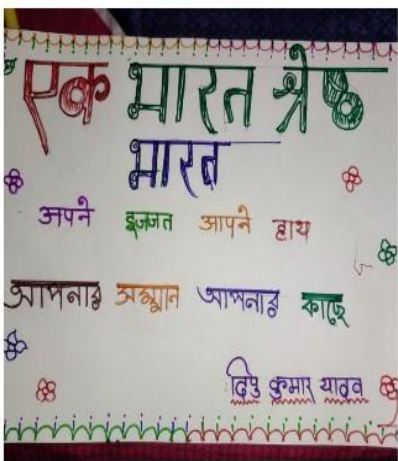 एक भारत श्रेष्ठ
भारत
अपने इज्जत आपने हाथ
আপনার সম্মান আপনার কাছে
दिपु कुमार यादव